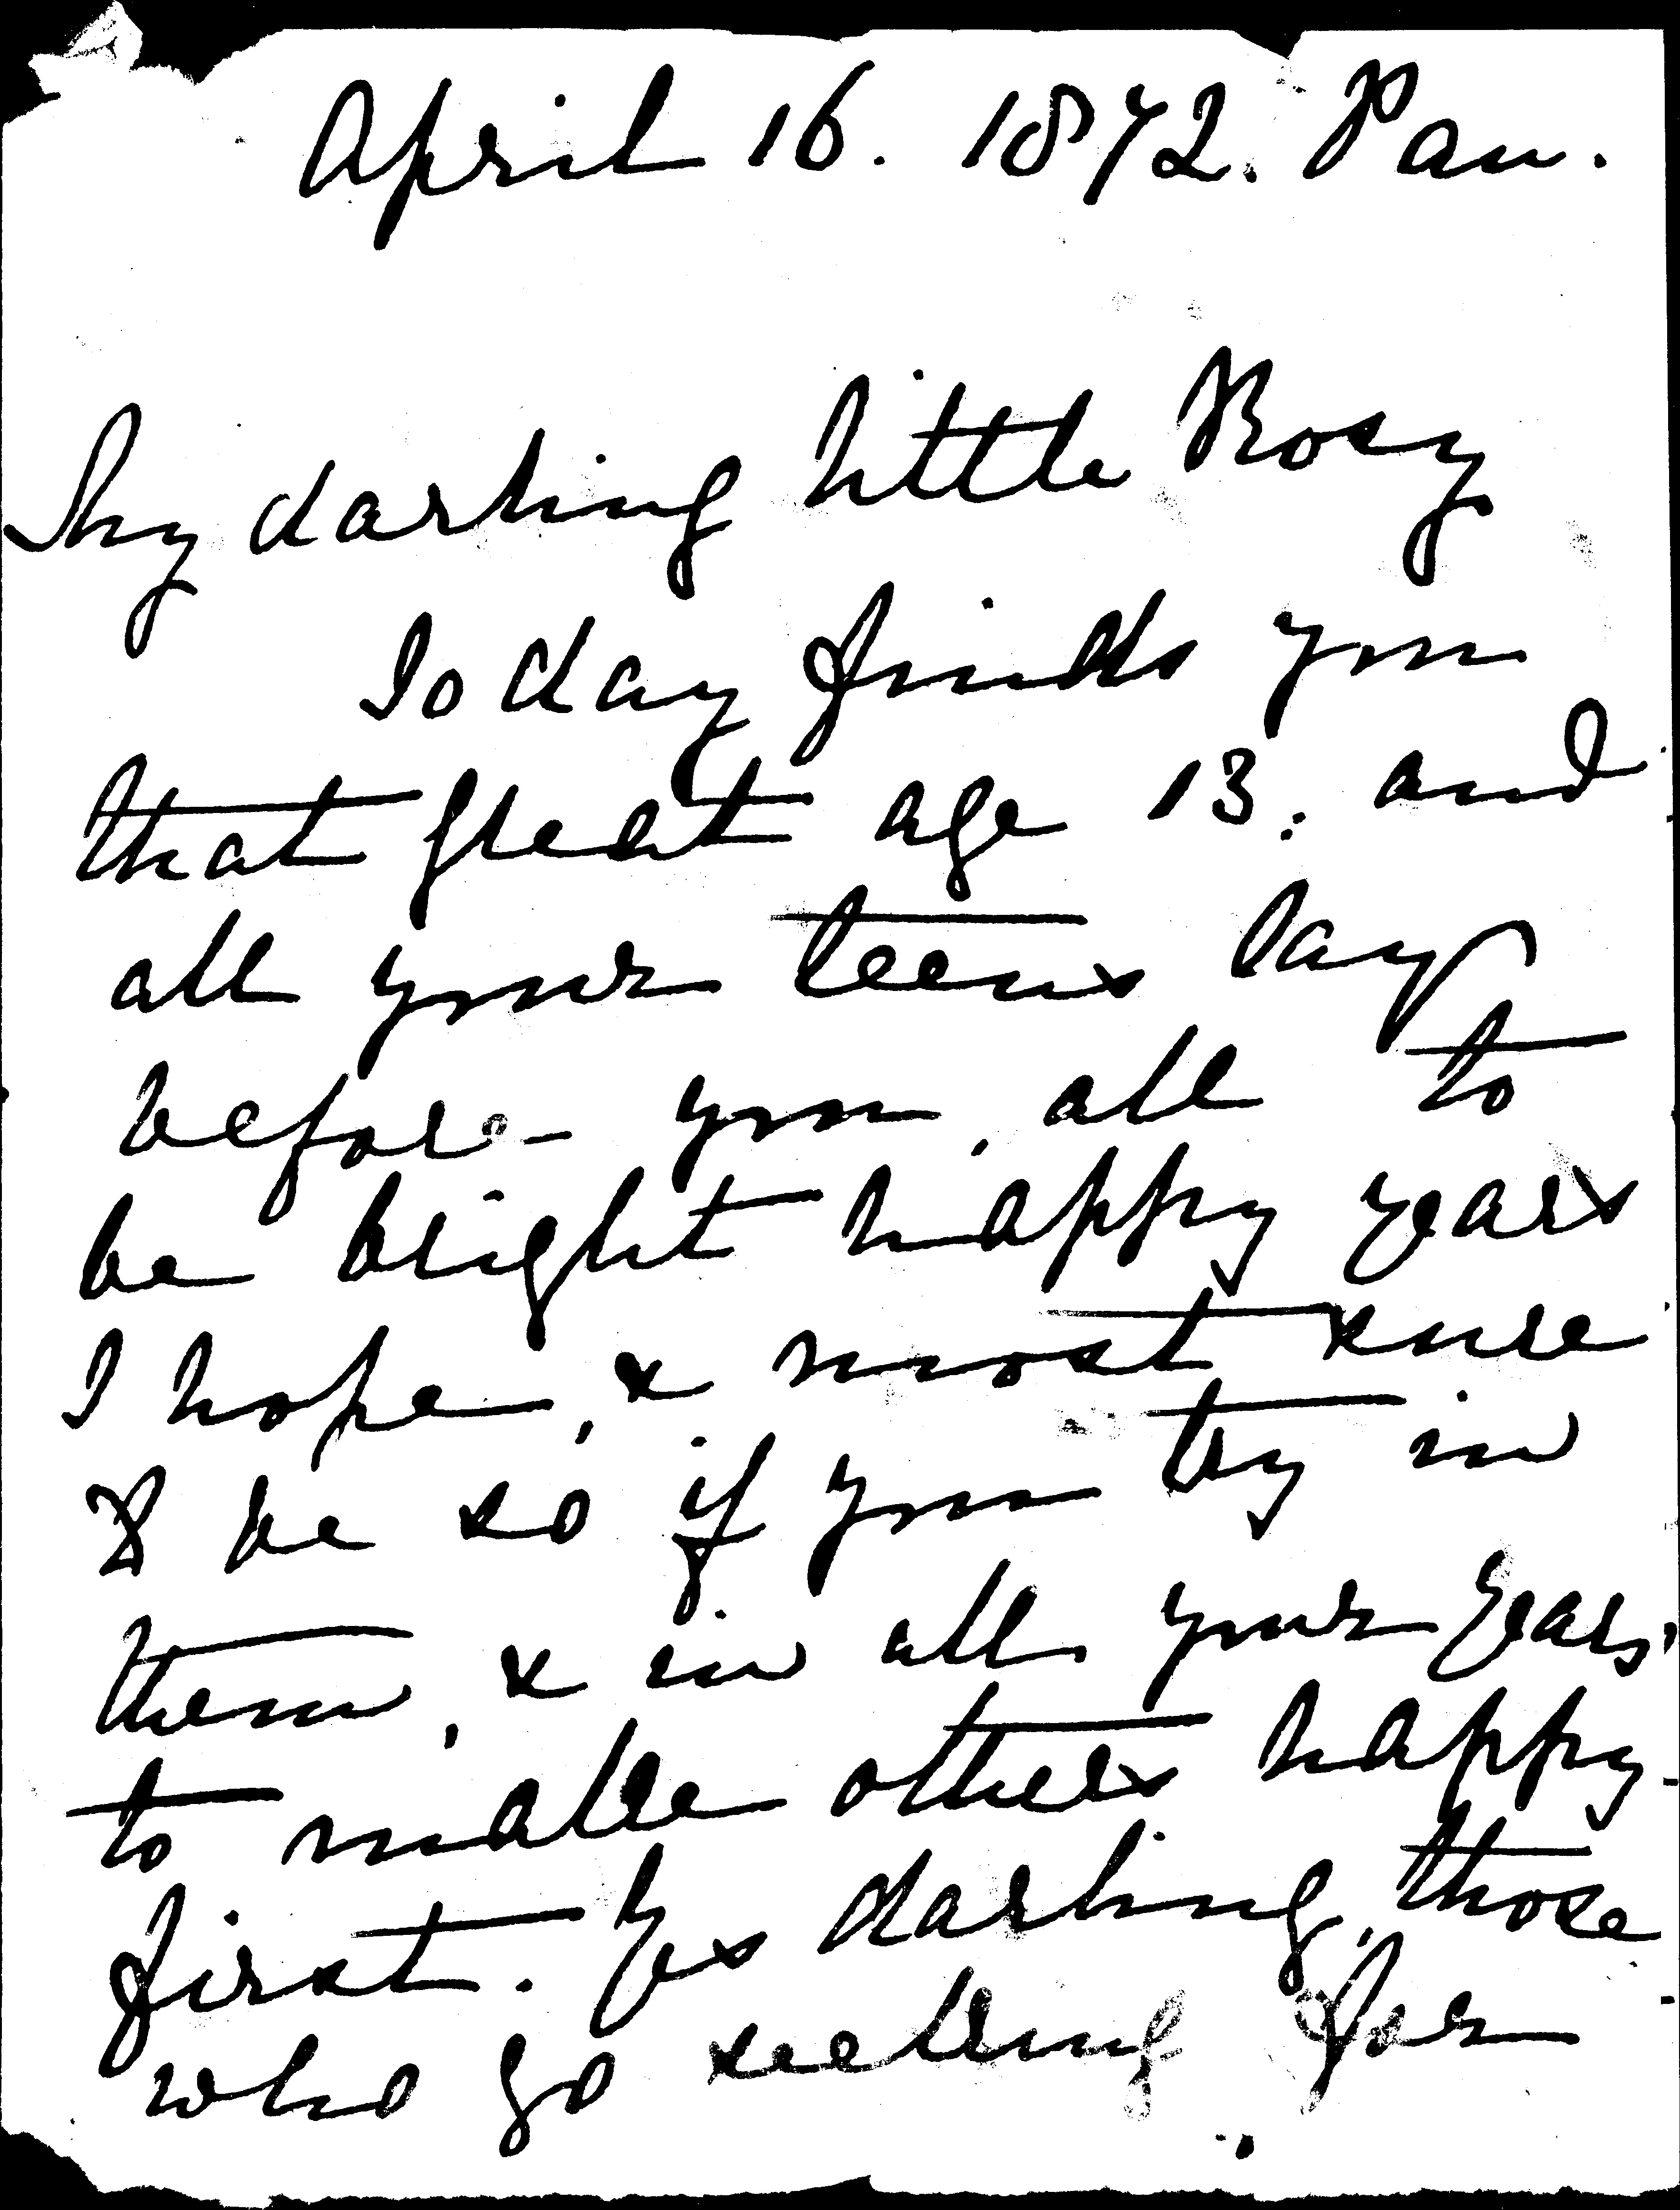 April 16. 1872. Pau.
My darling little Rosy
To day finds you
that great age 13: and
all your teens lay
before you, all to
be bright happy years
I hope, & most sure
& be so if you try in
them, & in all your years,
to make others happy
first. Yes darling, those
who go seeking for